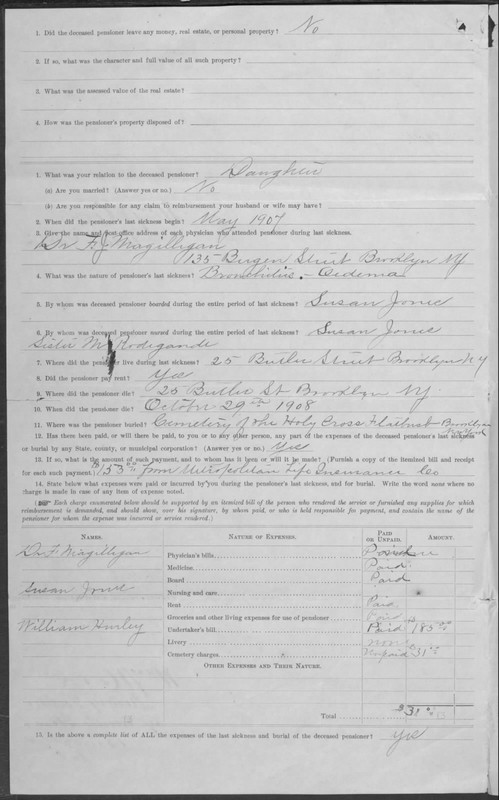 1. Did the deceased pensioner leave any money, real estate, or personal property? No
2. If so, what was the character and full value of all such property?
3. What was the assessed value of the real estate?
4. How was the pensioner's property disposed of?
1. What was your relation to the deceased pensioner? Daughter
(a) Are you married? (Answer yes or no.) No
(b) Are you responsible for any claim to reimbursement your husband or wife may have?
2. When did the pensioner's last sickness begin? May 1907
3. Give the name and post-office address of each physician who attended pensioner during last sickness.
Dr F. J. Magilligan
135 Bergen Street Brooklyn NY
4. What was the nature of pensioner's last sickness? Bronchitis. - Oedema
5. By whom was deceased pensioner boarded during the entire period of last sickness? Susan Jones
6. By whom was deceased pensioner nursed during the entire period of last sickness? Susan Jones
Sister M Rodegande
7. Where did the pensioner live during last sickness? 25 Butler Street Brooklyn N Y
8. Did the pensioner pay rent? Yes
9. Where did the pensioner die? 25 Butler St Brooklyn NY.
10. When did the pensioner die? October 29th 1908
11. Where was the pensioner buried? Cemetery of the Holy Cross Flatbush Brooklyn
New York
12. Has there been paid, or will there be paid, to you or to any other person, any part of the expenses of the deceased pensioner's last sickness
or burial by any State, county, or municipal corporation? (Answer yes or no.) Yes
13. If so, what is the amount of such payment, and to whom has it been or will it be made? (Furnish a copy of the itemized bill and receipt
for each such payment.) $153.00 from Metropolitan Life Insurance Co
14. State below what expenses were paid or incurred by you during the pensioner's last sickness, and for burial. Write the word none where no
charge is made in case of any item of expense noted.
(Each charge enumerated below should be supported by an itemized bill of the person who rendered the service or furnished any supplies for which
reimbursement is demanded, and should show, over his signature, by whom paid, or who is held responsible for payment, and contain the name of the
pensioner for whom the expense was incurred or service rendered.)
NAMES. NATURE OF EXPENSES. PAID OR UNPAID. AMOUNT.
Dr F. Magilligan Physician's bills
Medicine Paid
Susan Jones Board Paid
Nursing and care
Rent Paid
Groceries and other living expenses for use of pensioner Paid
William Hurley Undertaker's bill Paid 185 00
Livery none
Cemetery charges Unpaid 31 00
OTHER EXPENSES AND THEIR NATURE.
Total $31 00
15. Is the above a complete list of ALL the expenses of the last sickness and burial of the deceased pensioner? Yes